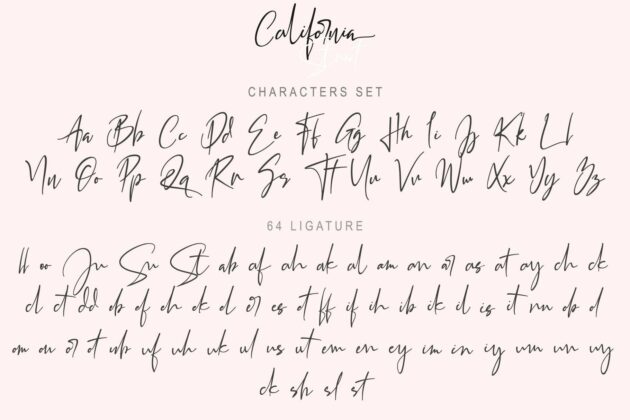 California
CHARACTERS SET
Aa Bb Cc Dd Ee Ff Gg Hh Ii Jj Kk Ll
Nn Oo Pp Qq Rr Ss Tt Uu Vv Ww Xx Yy Zz
64 LIGATURE
ll oo Ju Su St ab af ah ak al am an ar as at ay ch ck
cl ct dd eb ef eh ek el er es et ff if ih ib ik il is it nn ob ol
om on or ot ub uf uh uk ul us ut em en ey im in iy um un uy
ck sh sl st